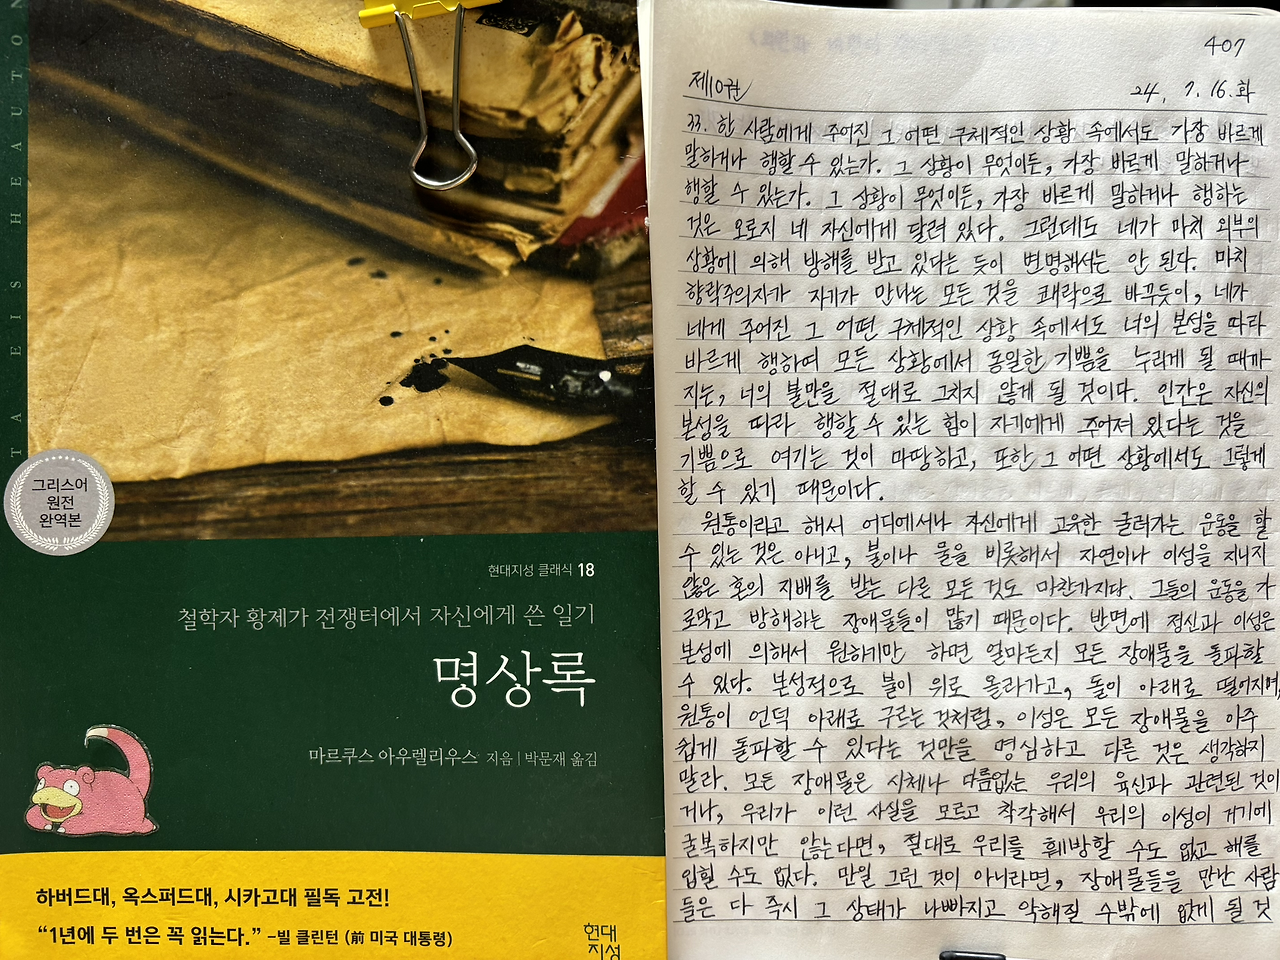 T A E I S H E A U T O N
그리스어
원전
완역본
현대지성 클래식 18
철학자 황제가 전쟁터에서 자신에게 쓴 일기
명상록
마르쿠스 아우렐리우스 지음 | 박문재 옮김
하버드대, 옥스퍼드대, 시카고대 필독 고전!
“1년에 두 번은 꼭 읽는다.” –빌 클린턴 (前 미국 대통령)
현대
지성
407
제10권
24. 7. 16. 화
33. 한 사람에게 주어진 그 어떤 구체적인 상황 속에서도 가장 바르게
말하거나 행할 수 있는가. 그 상황이 무엇이든, 가장 바르게 말하거나
행할 수 있는가. 그 상황이 무엇이든, 가장 바르게 말하거나 행하는
것은 오로지 네 자신에게 달려 있다. 그런데도 네가 마치 외부의
상황에 의해 방해를 받고 있다는 듯이 변명해서는 안 된다. 마치
향락주의자가 자기가 만나는 모든 것을 쾌락으로 바꾸듯이, 네가
네게 주어진 그 어떤 구체적인 상황 속에서도 너의 본성을 따라
바르게 행하여 모든 상황에서 동일한 기쁨을 누리게 될 때까
지는, 너의 불만을 절대로 그치지 않게 될 것이다. 인간은 자신의
본성을 따라 행할 수 있는 힘이 자기에게 주어져 있다는 것을
기쁨으로 여기는 것이 마땅하고, 또한 그 어떤 상황에서도 그렇게
할 수 있기 때문이다.
원통이라고 해서 어디에서나 자신에게 고유한 굴러가는 운동을 할
수 있는 것은 아니고, 불이나 물을 비롯해서 자연이나 이성을 지니지
않은 혼의 지배를 받는 다른 모든 것도 마찬가지다. 그들의 운동을 가
로막고 방해하는 장애물들이 많기 때문이다. 반면에 정신과 이성은
본성에 의해서 원하기만 하면 얼마든지 모든 장애물을 돌파할
수 있다. 본성적으로 불이 위로 올라가고, 돌이 아래로 떨어지며,
원통이 언덕 아래로 구르는 것처럼, 이성은 모든 장애물을 아주
쉽게 돌파할 수 있다는 것만을 명심하고 다른 것은 생각하지
말라. 모든 장애물은 시체나 다름없는 우리의 육신과 관련된 것이
거나, 우리가 이런 사실을 모르고 착각해서 우리의 이성이 거기에
굴복하지만 않는다면, 절대로 우리를 훼방할 수도 없고 해를
입힐 수도 없다. 만일 그런 것이 아니라면, 장애물들을 만난 사람
들은 다 즉시 그 상태가 나빠지고 악해질 수밖에 없게 될 것